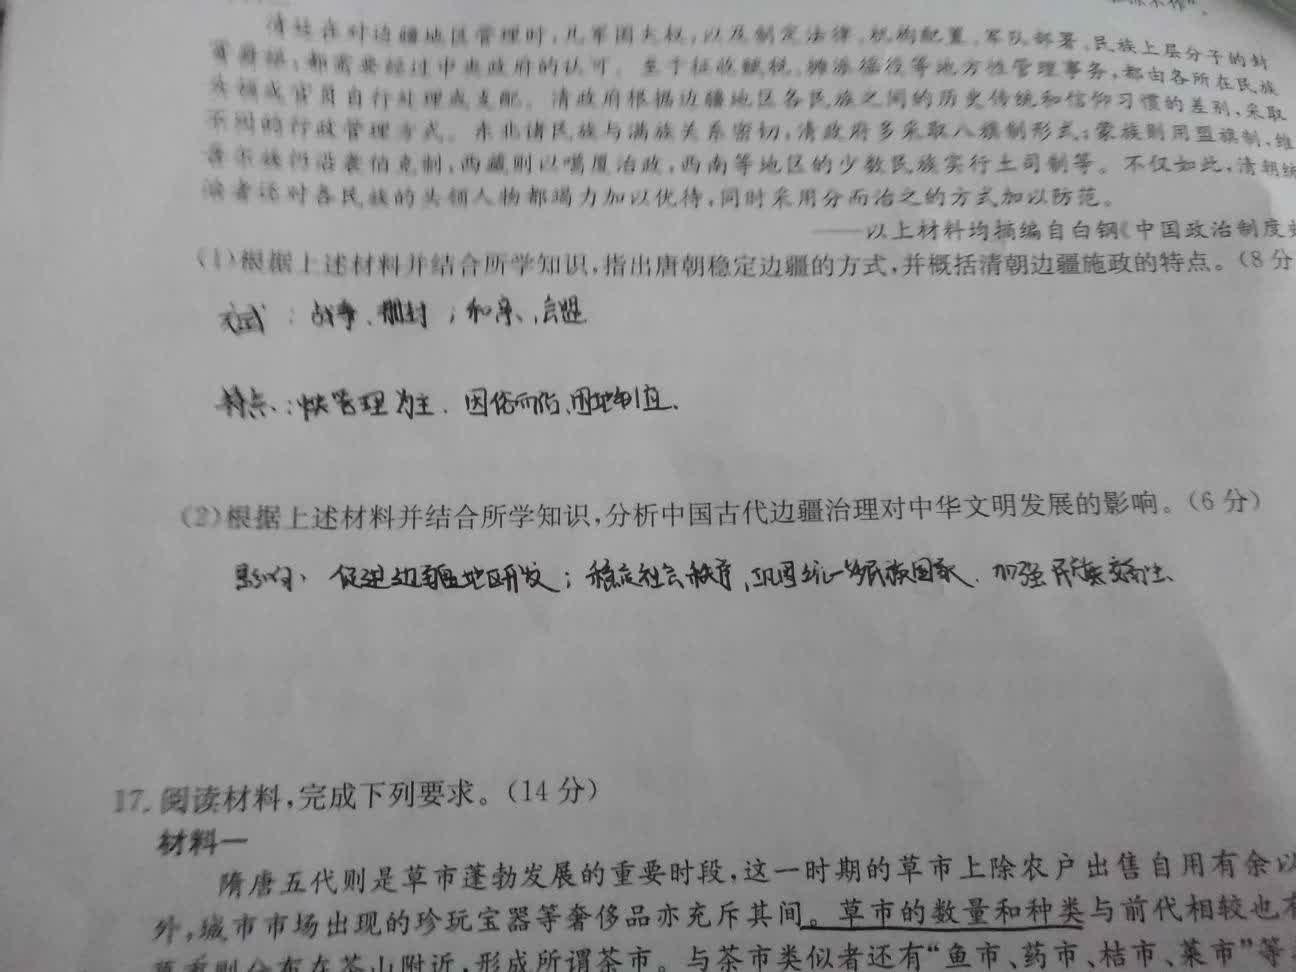 清廷在对边疆地区管理时,凡军国大权,以及制定法律、机构配置、军队部署、民族上层分子的封
都需要经过中央政府的认可。至于征收赋税、摊派徭役等地方性管理事务,都由各所在民族
头领或官员自行处理或支配。清政府根据边疆地区各民族之间的历史传统和信仰习惯的差别,采取
不同的行政管理方式。东北诸民族与满族关系密切,清政府多采取八旗制形式;蒙族则用盟旗制,维
吾尔族仍沿袭伯克制,西藏则以噶厦治政,西南等地区的少数民族实行土司制等。不仅如此,清朝统
治者还对各民族的头领人物都竭力加以优待,同时采用分而治之的方式加以防范。
——以上材料均摘编自白钢《中国政治制度史
(1)根据上述材料并结合所学知识,指出唐朝稳定边疆的方式,并概括清朝边疆施政的特点。(8分
方式:战争、册封;和亲、会盟
特点:管理为主、因俗而治、因地制宜、
(2)根据上述材料并结合所学知识,分析中国古代边疆治理对中华文明发展的影响。(6分)
影响:促进边疆地区开发;稳定社会秩序,巩固统一多民族国家、加强民族
17.阅读材料,完成下列要求。(14分)
材料一
隋唐五代则是草市蓬勃发展的重要时段,这一时期的草市上除农户出售自用有余以
外,城市市场出现的珍玩宝器等奢侈品亦充斥其间。草市的数量和种类与前代相较也有
分布在茶山附近,形成所谓茶市。与茶市类似者还有“鱼市、药市、桔市、菜市”等